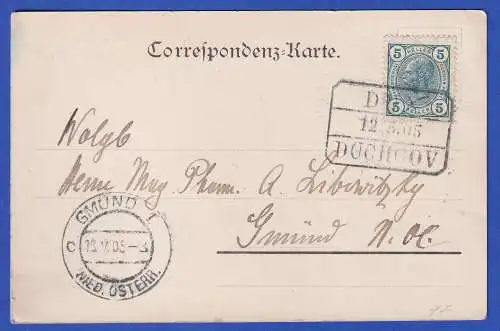 Correspondenz-Karte.
5 HELLER 5
5 HELLER 5
12.5.05
DUCHCOV
Wolgb
Herrn Mag Pharm. A. Libowitzky
Gmünd N. Oe.
GMÜND 1
c 13.V.05-3
NIED. ÖSTERR.